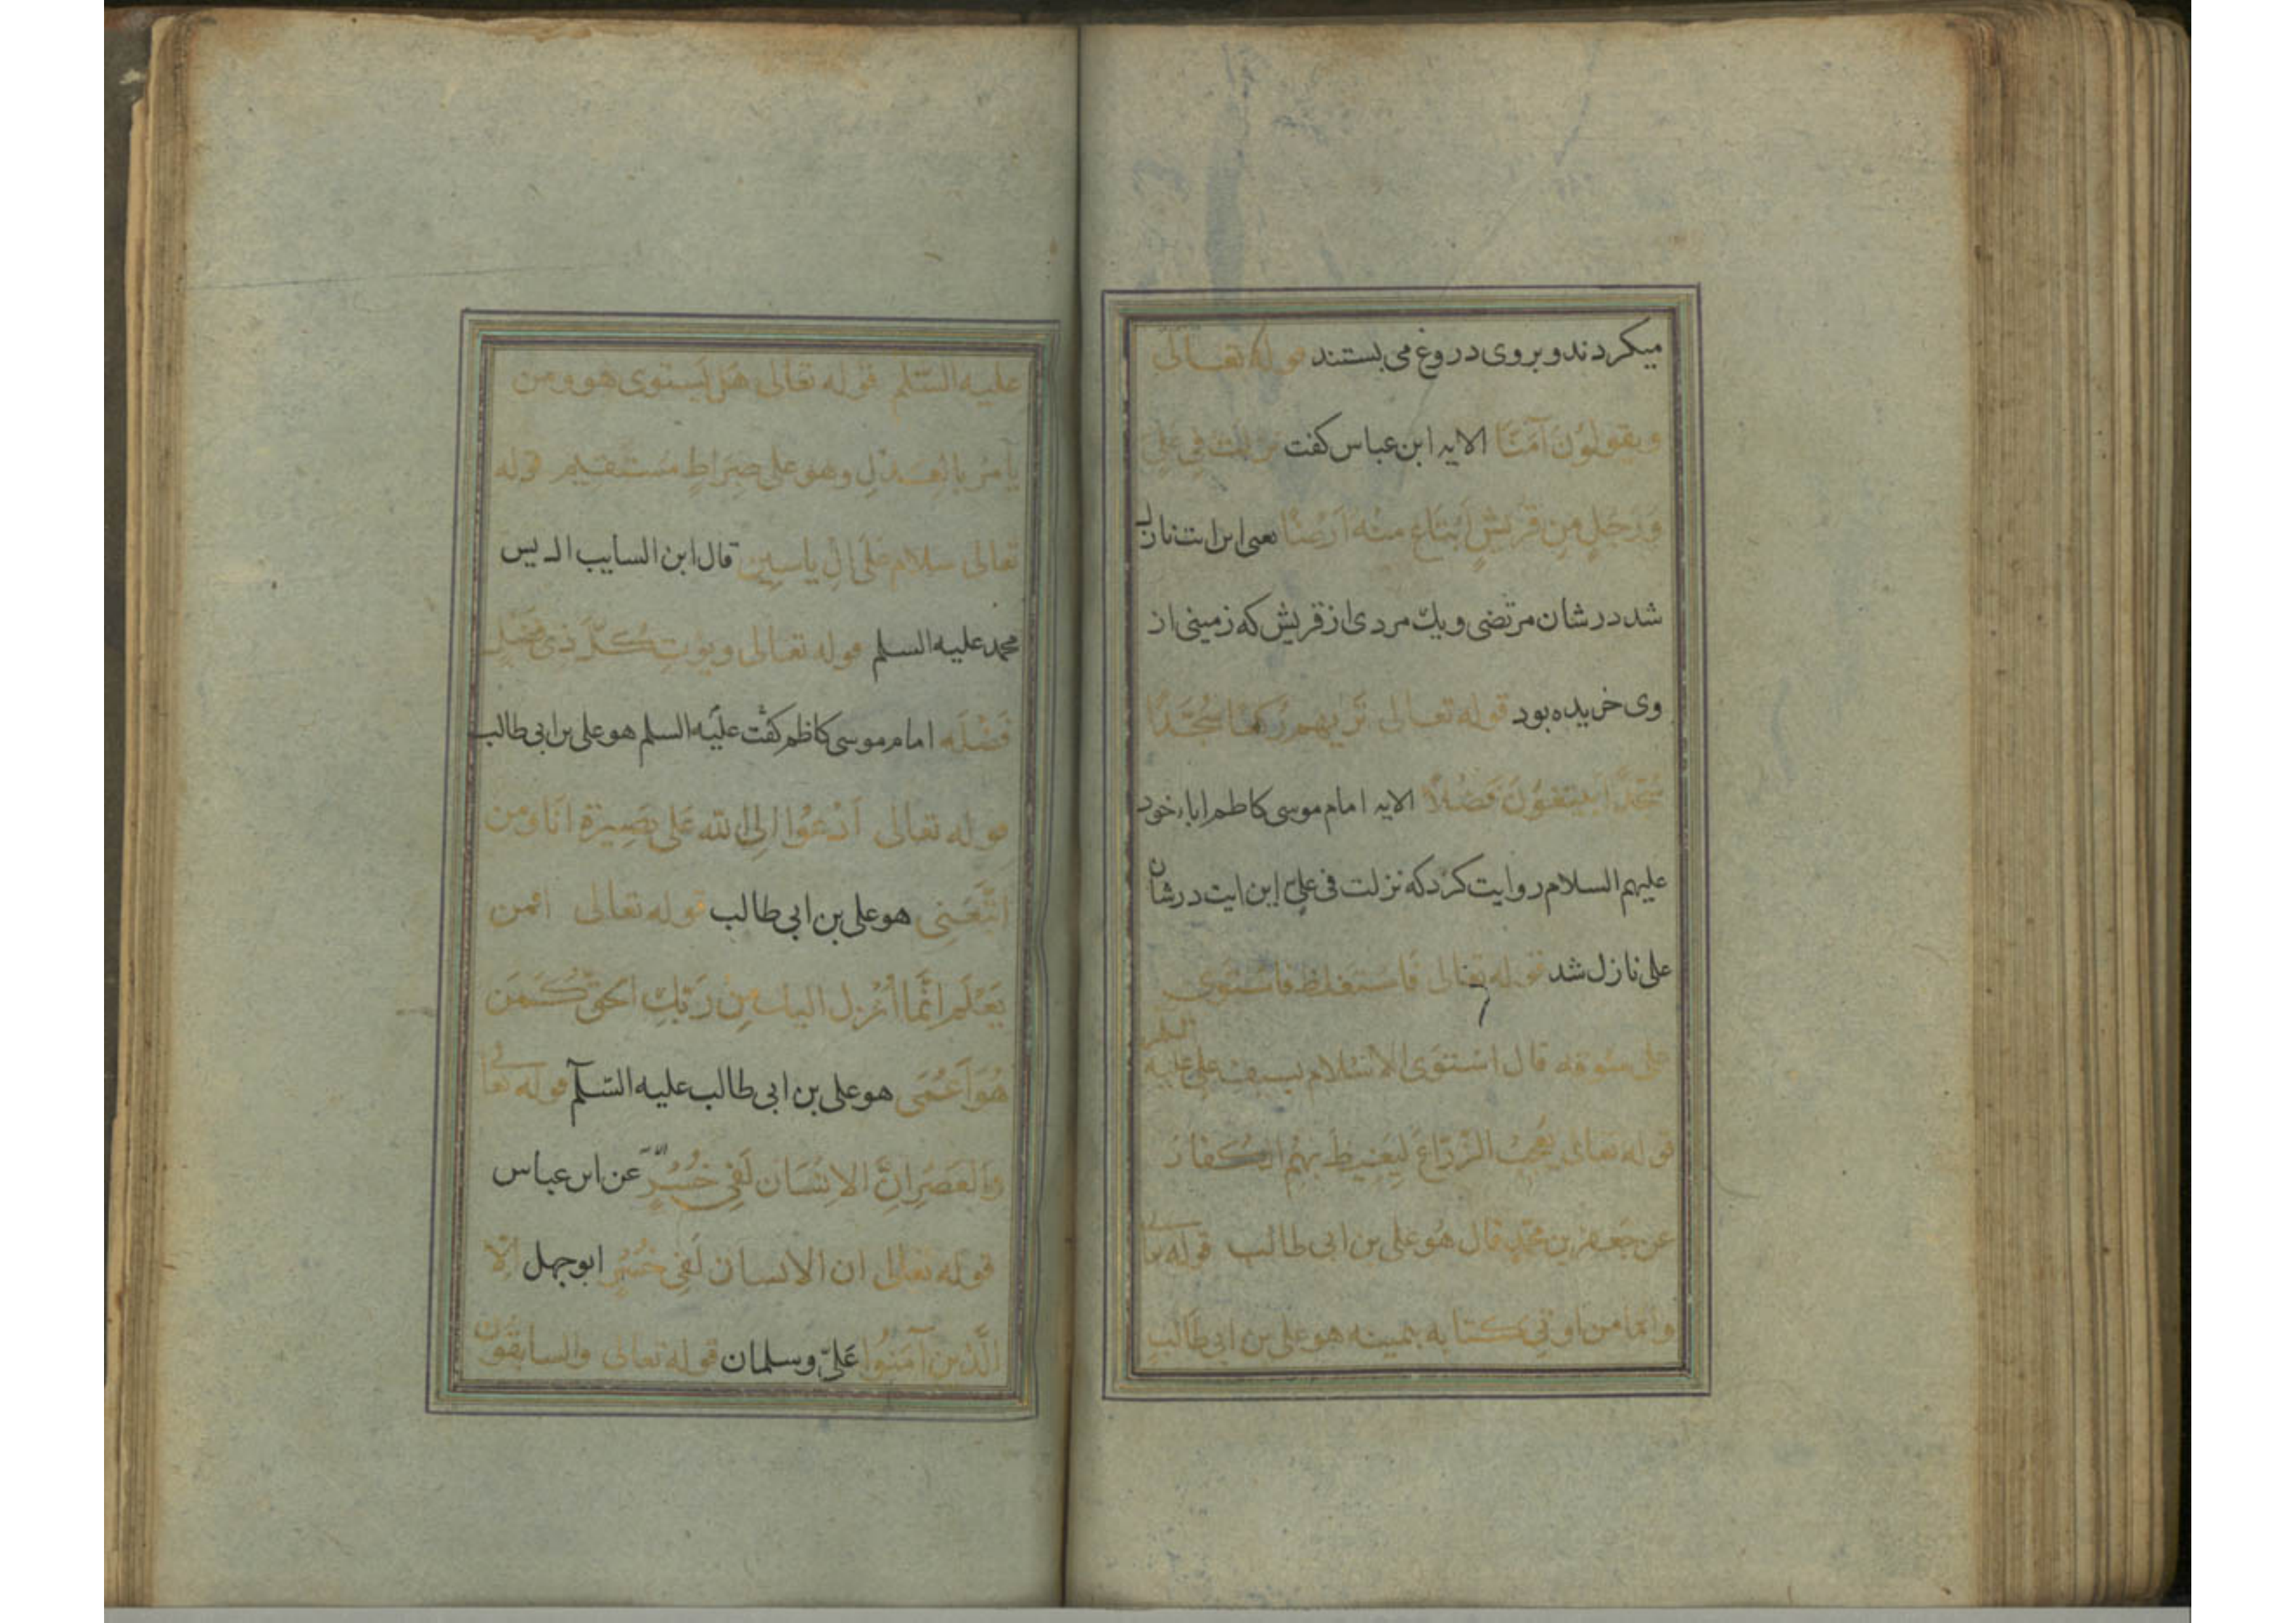 میکردند و بروی دروغ می بستند قوله تعالی
ویقولون آمنّا الایه ابن عباس کفت نزلت فی علیّ
ورجل من قریش ابتاع منه ارضًا یعنی این ایت نازل
شد در شان مرتضی و یک مردی از قریش که زمینی از
وی خریده بود قوله تعالی تریهم رکعًا سجّدًا
سجّدًا یبتغون فضلاً الایه امام موسی کاظم اباء خود
علیهم السلام روایت کرد که نزلت فی علیّ این ایت در شان
علی نازل شد قوله تعالی فاستغلظ فاستوی
علی سوقه قال استوی الاسلام بسیف علی علیه السلم
قوله تعالی یعجب الزرّاع لیغیظ بهم الکفار
عن جعفر بن محمّد قال هو علی بن ابی طالب قوله تعالی
وامّا من اوتی کتابه بیمینه هو علی بن ابی طالب
علیه السّلم قوله تعالی هل یستوی هو و من
یأمر بالعدل وهو علی صراط مستقیم قوله
تعالی سلام علی ال یاسین قال ابن السایب ال یس
محمد علیه السلم قوله تعالی ویؤت کلّ ذی فضل
فضله امام موسی کاظم کفت علیه السلم هو علی بن ابی طالب
قوله تعالی ادعوا الی الله علی بصیرة انا ومن
اتّبعنی هو علی بن ابی طالب قوله تعالی افمن
یعلم انّما أنزل الیک من ربّک الحقّ کمن
هو اعمی هو علی بن ابی طالب علیه السّلم قوله تعالی
والعصر انّ الانسان لفی خسر عن ابن عباس
قوله تعالی ان الانسان لفی خسر ابوجهل الّا
الّذین آمنوا علیّ و سلمان قوله تعالی والسابقون